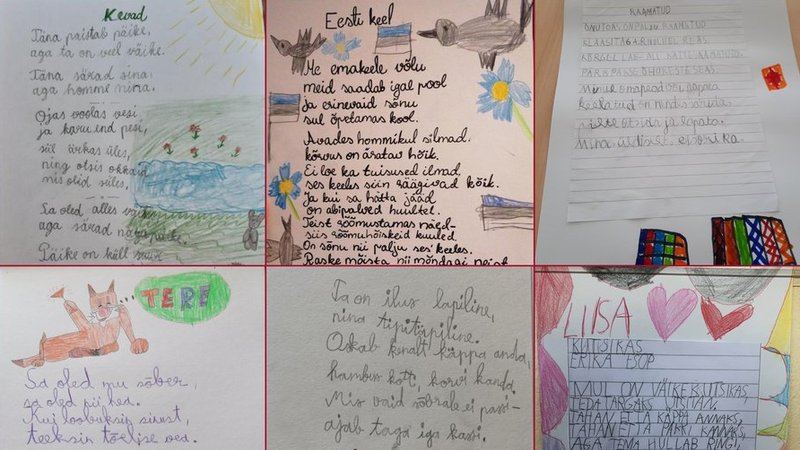 Kevad
Täna paistab päike,
aga ta on veel väike.
Täna särad sina,
aga homme mina.
Ojas voolas vesi,
ja karu end pesi,
siil ärkas üles,
ning otsis okkaid
mis olid süles.
Sa oled alles
aga särad
Päike on küll suur
Eesti keel
Me emakeele võlu
meid saadab igal pool
ja erinevaid sõnu
sul õpetamas kool.
Avades hommikul silmad.
kõrvus on äratav hõik.
Ei loe ka tuisused ilmad,
ses keeles siin räägivad kõik.
Ja kui sa hätta jääd
on abipalved huultel.
Teist rõõmustamas näed-
siis rõõmuhõiskeid kuuled
On sõnu nii palju ses' keeles.
Raske mõista nii mõndagi neist
RAAMATUD
ON
KÕRGEL LAE ALL
keelatud on
Mina üldiselt
TERE
Sa oled mu sõber,
sa oled nii hea.
Kui loobuksin sinust,
teeksin tõelise vea.
Ta on ilus lapiline,
nina tipitäpiline.
Oskab kenalt käppa anda,
hambus kotti, korvi kanda.
Mis vaid sõbrale ei passi-
ajab taga iga kassi.
LIISA
KUTSIKAS
ERIKA ESOP
MUL ON VÄIKE KUTSIKAS,
TEDA TARGAKS ÕPETAN.
TAHAN ET TA KÄPPA ANNAKS,
TAHAN ET TA PARKI KANNAKS,
AGA TEMA HULLAB RINGI,